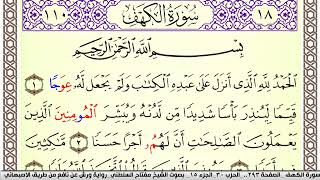 ١١٠ سُورَةُ الْكَهْفِ ١٨
بِسْمِ اللَّهِ الرَّحْمَٰنِ الرَّحِيمِ
الْحَمْدُ لِلَّهِ الَّذِي أَنزَلَ عَلَىٰ عَبْدِهِ الْكِتَابَ وَلَمْ يَجْعَل لَّهُ عِوَجًا ١
قَيِّمًا لِّيُنذِرَ بَأْسًا شَدِيدًا مِّن لَّدُنْهُ وَيُبَشِّرَ الْمُومِنِينَ الَّذِينَ
يَعْمَلُونَ الصَّالِحَاتِ أَنَّ لَهُمُ أَجْرًا حَسَنًا ٢
سورة الكهف الصفحة ٢٩٣ الحزب ٣٠ الجزء ١٥ بصوت الشيخ مفتاح السلطني رواية ورش عن نافع من طريق الاصبهاني